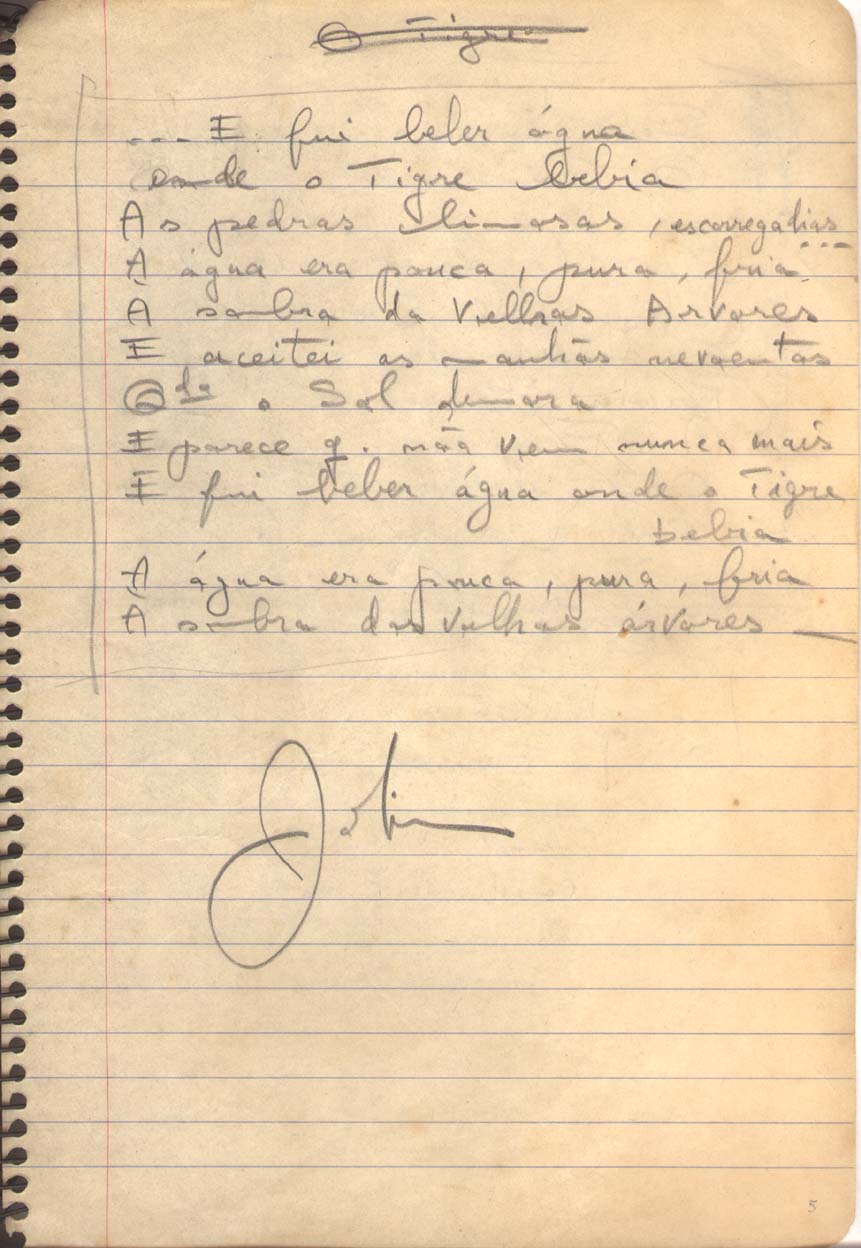 O Tigre
... E fui beber água
onde o Tigre bebia
As pedras limosas, escorregadias...
A água era pouca, pura, fria
À sombra da Velhas Arvores
E aceitei as manhãs nevoentas
o Sol demora
E parece q. não vem nunca mais
E fui beber água onde o Tigre
bebia
A água era pouca, pura, fria
À sombra das velhas árvores —
Jobim
5